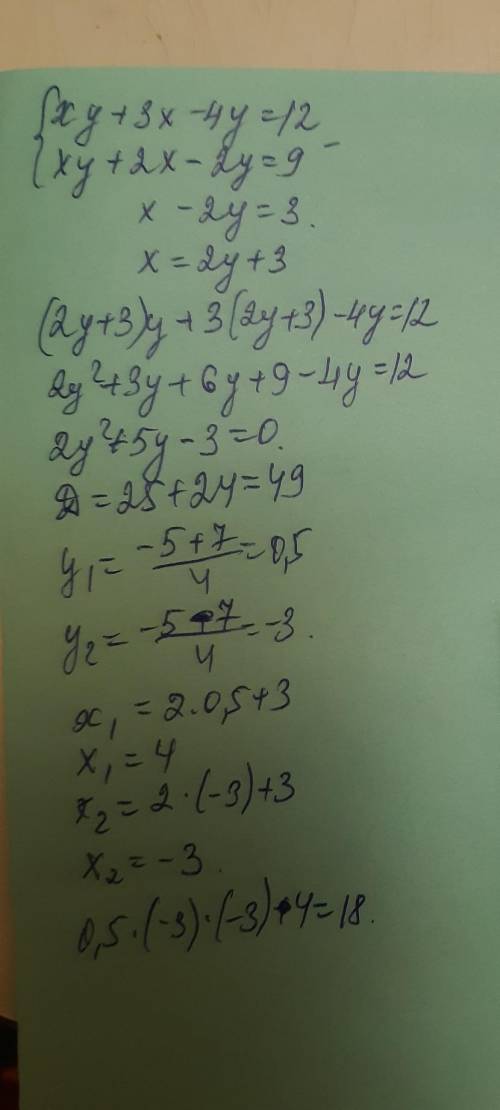 {xy + 3x - 4y = 12
xy + 2x - 2y = 9 -
x - 2y = 3.
x = 2y + 3
(2y+3)y + 3(2y+3) - 4y = 12
2y² + 3y + 6y + 9 - 4y = 12
2y² + 5y - 3 = 0.
D = 25 + 24 = 49
y₁ = (-5+7)/4 = 0,5
y₂ = (-5-7)/4 = -3.
x₁ = 2·0,5 + 3
x₁ = 4
x₂ = 2·(-3) + 3
x₂ = -3.
0,5·(-3)·(-3)·4 = 18.